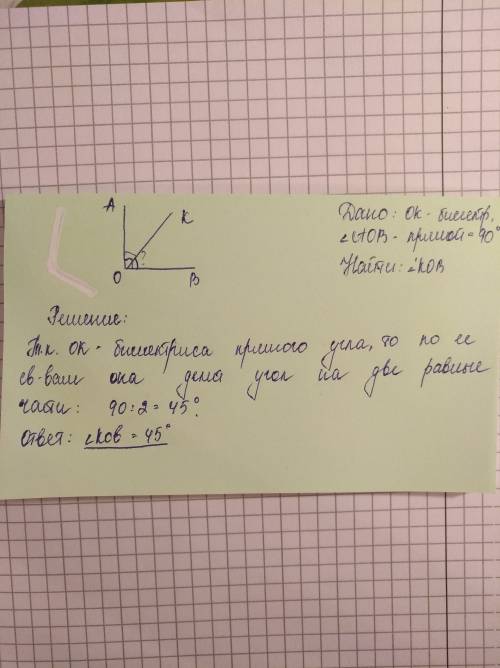 A
K
?
O
B
Дано: OK - биссектр.
∠AOB - прямой = 90°
Найти: ∠KOB
Решение:
Т.к. OK - биссектриса прямого угла, то по ее
св-вам она делит угол на две равные
части: 90 : 2 = 45°.
Ответ: ∠KOB = 45°